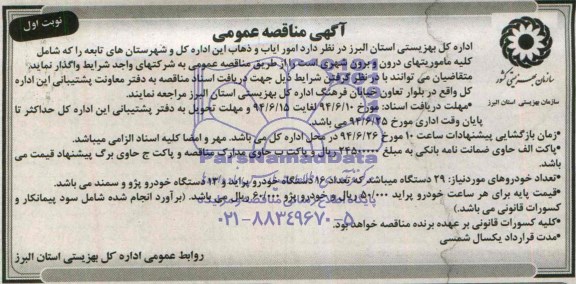 نوبت اول
آگهی مناقصه عمومی
سازمان بهزیستی کشور
سازمان بهزیستی استان البرز
اداره کل بهزیستی استان البرز در نظر دارد امور ایاب و ذهاب این اداره کل و شهرستان های تابعه را که شامل
کلیه ماموریتهای درون و برون شهری است را از طریق مناقصه عمومی به شرکتهای واجد شرایط واگذار نماید.
متقاضیان می توانند با در نظر گرفتن شرایط ذیل جهت دریافت اسناد مناقصه به دفتر معاونت پشتیبانی این اداره
کل واقع در بلوار تعاون خیابان فرهنگ اداره کل بهزیستی استان البرز مراجعه نمایند.
*مهلت دریافت اسناد: مورخ ۹۴/۶/۱۰ لغایت ۹۴/۶/۱۵ و مهلت تحویل به دفتر پشتیبانی این اداره کل حداکثر تا
پایان وقت اداری مورخ ۹۴/۶/۲۵ می باشد.
*زمان بازگشایی پیشنهادات ساعت ۱۰ مورخ ۹۴/۶/۲۶ در محل اداره کل می باشد. مهر و امضا کلیه اسناد الزامی میباشد.
*پاکت الف حاوی ضمانت نامه بانکی به مبلغ ریال و پاکت ب حاوی مدارک مناقصه و پاکت ج حاوی برگ پیشنهاد قیمت می
باشد.
*تعداد خودروهای موردنیاز: ۲۹ دستگاه میباشد که تعداد ۱۶ دستگاه خودرو پراید و ۱۳ دستگاه خودرو پژو و سمند می باشد.
*قیمت پایه برای هر ساعت خودرو پراید ۵۰/۰۰۰ ریال و خودرو پژو ۶۰/۰۰۰ ریال می باشد. (برآورد انجام شده شامل سود پیمانکار و
کسورات قانونی می باشد.)
*کلیه کسورات قانونی بر عهده برنده مناقصه خواهد بود.
*مدت قرارداد یکسال شمسی
روابط عمومی اداره کل بهزیستی استان البرز
ParsNamadData
۰۲۱-۸۸۳۴۹۶۷۰-۵